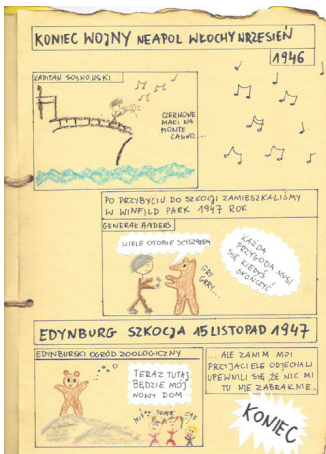 KONIEC WOJNY NEAPOL WŁOCHY WRZESIEŃ
1946
KAPITAN SOSNOWSKI
CZERWONE
MAKI NA
MONTE
CASINO...
PO PRZYBYCIU DO SZKOCJI ZAMIESZKALIŚMY
W WINFILD PARK 1947 ROK
GENERAŁ ANDERS
WIELE O TOBIE SŁYSZAŁEM
GRY
GRRY...
KAŻDA
PRZYGODA MUSI
SIĘ KIEDYŚ
SKOŃCZYĆ
EDYNBURG SZKOCJA 15 LISTOPAD 1947
EDYNBURSKI OGRÓD ZOOLOGICZNY
TERAZ TUTAJ
BĘDZIE MÓJ
NOWY DOM
MIŚ SUPER
...ALE ZANIM MOI
PRZYJACIELE ODJECHALI
UPEWNILI SIĘ ŻE NIC MI
TU NIE ZABRAKNIE...
KONIEC